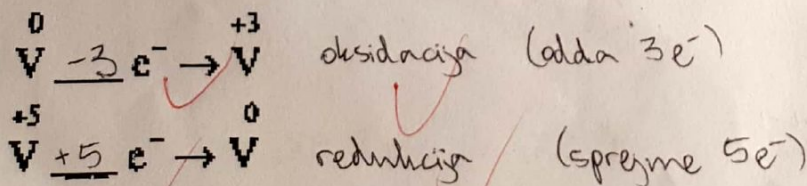 0 +3
V -3 e⁻ → V oksidacija (odda 3e⁻)
+5 0
V +5 e⁻ → V redukcija (sprejme 5e⁻)